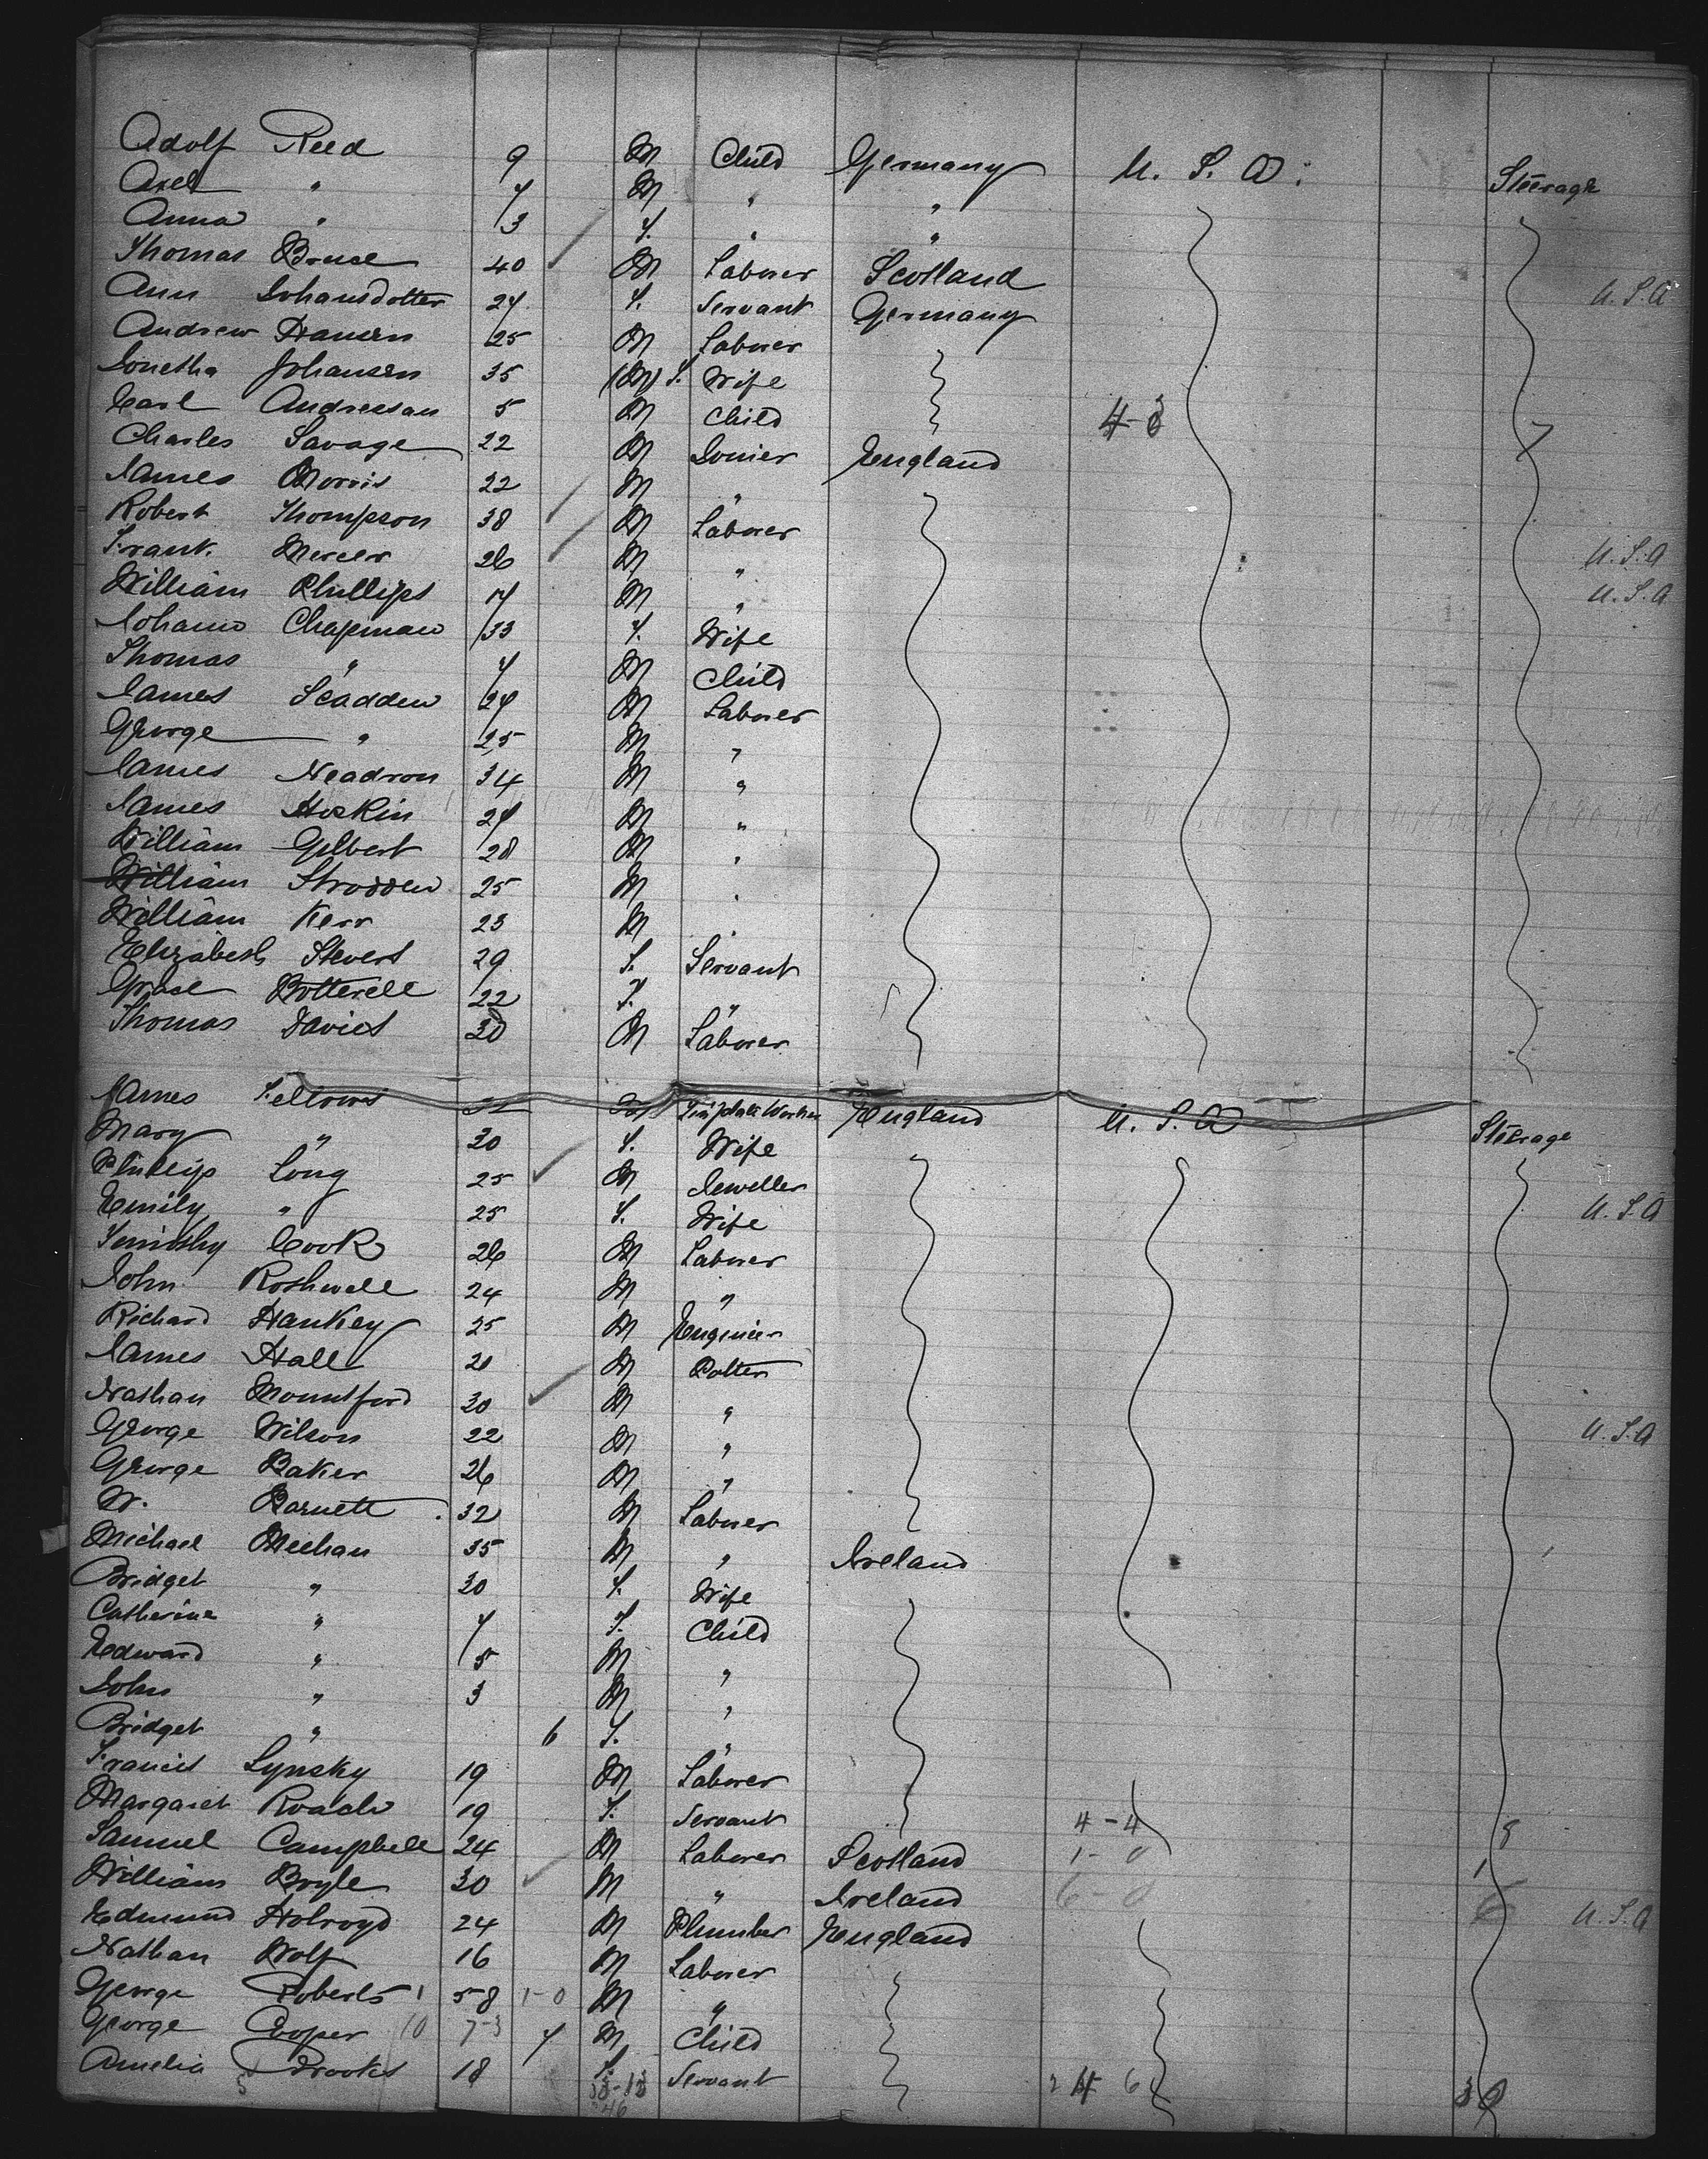 Adolf Reed 9 M Child Germany U. S. A. Steerage
Axel " 7 M " "
Anna " 3 F. " "
Thomas Bruce 40 M Laborer Scotland U.S.A
Ann Johansdotter 24 F. Servant Germany
Andrew Hansen 25 M Laborer
Johansen 35 (M) F. Wife
Carl Andressan 5 M Child
Charles Savage 22 M Joiner England
James Morris 22 M "
Robert Thompson 38 M Laborer
Frank Mercer 26 M " U.S.A
William Phillips 17 M " U.S.A
Johann Chapman 33 F. Wife
Thomas " 7 M Child
James Scadden 24 M Laborer
George " 25 M "
James Neadron 34 M "
James Hoskin 24 M "
William Gilbert 28 M "
William 25 M "
William Kerr 23 M "
Elizabeth Stevens 29 F. Servant
Grace Botterell 22 F. "
Thomas Davies 30 M Laborer
James Fellows 32 M Tin plate Worker England U. S. A Steerage
Mary " 30 F. Wife
Phillip Long 25 M Jeweller
Emily " 25 F. Wife U.S.A
Timothy Cook 26 M Laborer
John Rothwell 24 M "
Richard Hankey 25 M Engineer
James Hall 21 M Potter
Nathan Mountford 30 M "
George Wilson 22 M " U.S.A
George Baker 26 M "
W. Barnett 32 M Laborer
Michael Meehan 35 M " Ireland
Bridget " 30 F. Wife
Catherine " 7 F. Child
Edward " 5 M "
John " 3 M "
Bridget " 6 F. "
Francis Lynsky 19 M Laborer
Margaret Roach 19 F. Servant 4-4 8
Samuel Campbell 24 M Laborer Scotland 1-0 1
William Boyle 30 M " Ireland 6-0 6
Edmund Holroyd 24 M Plumber England U.S.A
Nathan Wolf 16 M Laborer
George Roberts 1 58 1-0 M "
George Cooper 10 7-3 7 M Child
Amelia Brooks 18 F. Servant